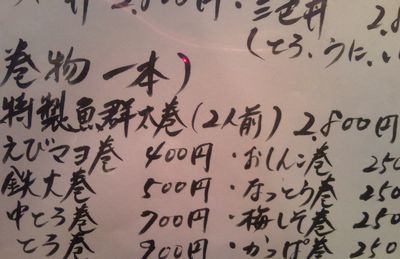 2,800円・三色丼 2,8
(とろ、うに、い
巻物一本)
特製魚群太巻(2人前) 2,800円
えびマヨ巻 400円・おしんこ巻 250
鉄火巻 500円・なっとう巻 250
中とろ巻 700円・梅しそ巻 250
とろ巻 900円・かっぱ巻 250